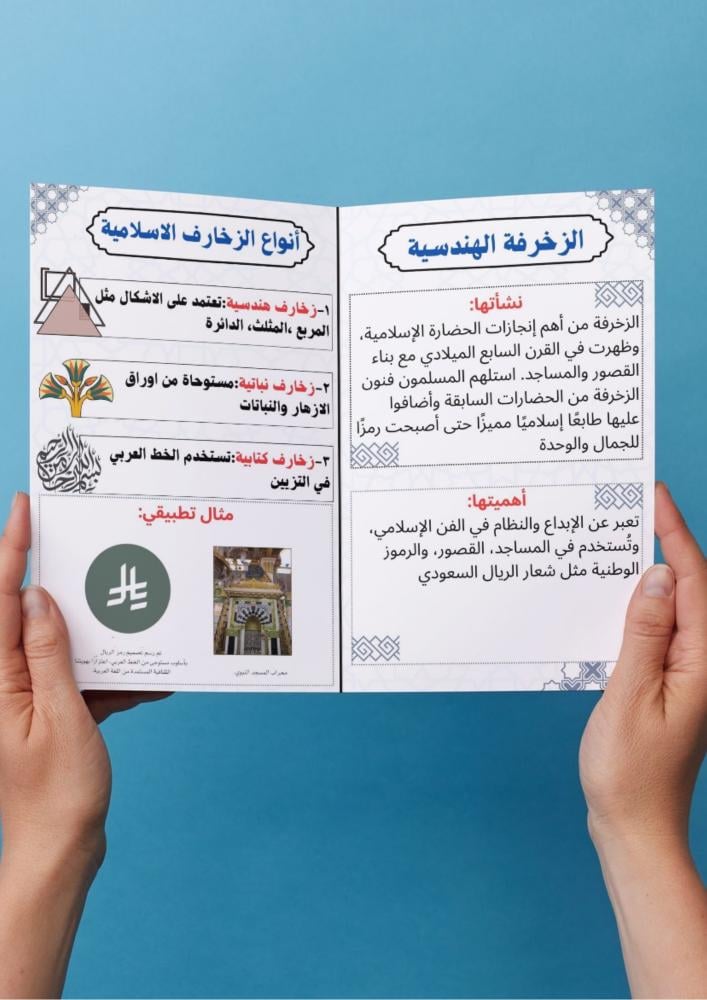 الزخرفة الهندسية
نشأتها:
الزخرفة من أهم إنجازات الحضارة الإسلامية،
وظهرت في القرن السابع الميلادي مع بناء
القصور والمساجد. استلهم المسلمون فنون
الزخرفة من الحضارات السابقة وأضافوا
عليها طابعًا إسلاميًا مميزًا حتى أصبحت رمزًا
للجمال والوحدة
أهميتها:
تعبر عن الإبداع والنظام في الفن الإسلامي،
وتُستخدم في المساجد، القصور، والرموز
الوطنية مثل شعار الريال السعودي
أنواع الزخارف الاسلامية
١-زخارف هندسية:تعتمد على الاشكال مثل
المربع ،المثلث، الدائرة
٢-زخارف نباتية:مستوحاة من اوراق
الازهار والنباتات
٣-زخارف كتابية:تستخدم الخط العربي
في التزيين
مثال تطبيقي:
محراب المسجد النبوي.
تم رسم تصميم رمز الريال
بأسلوب مستوحى من الخط العربي، اعتزازًا بهويتنا
الثقافية المستمدة من اللغة العربية.